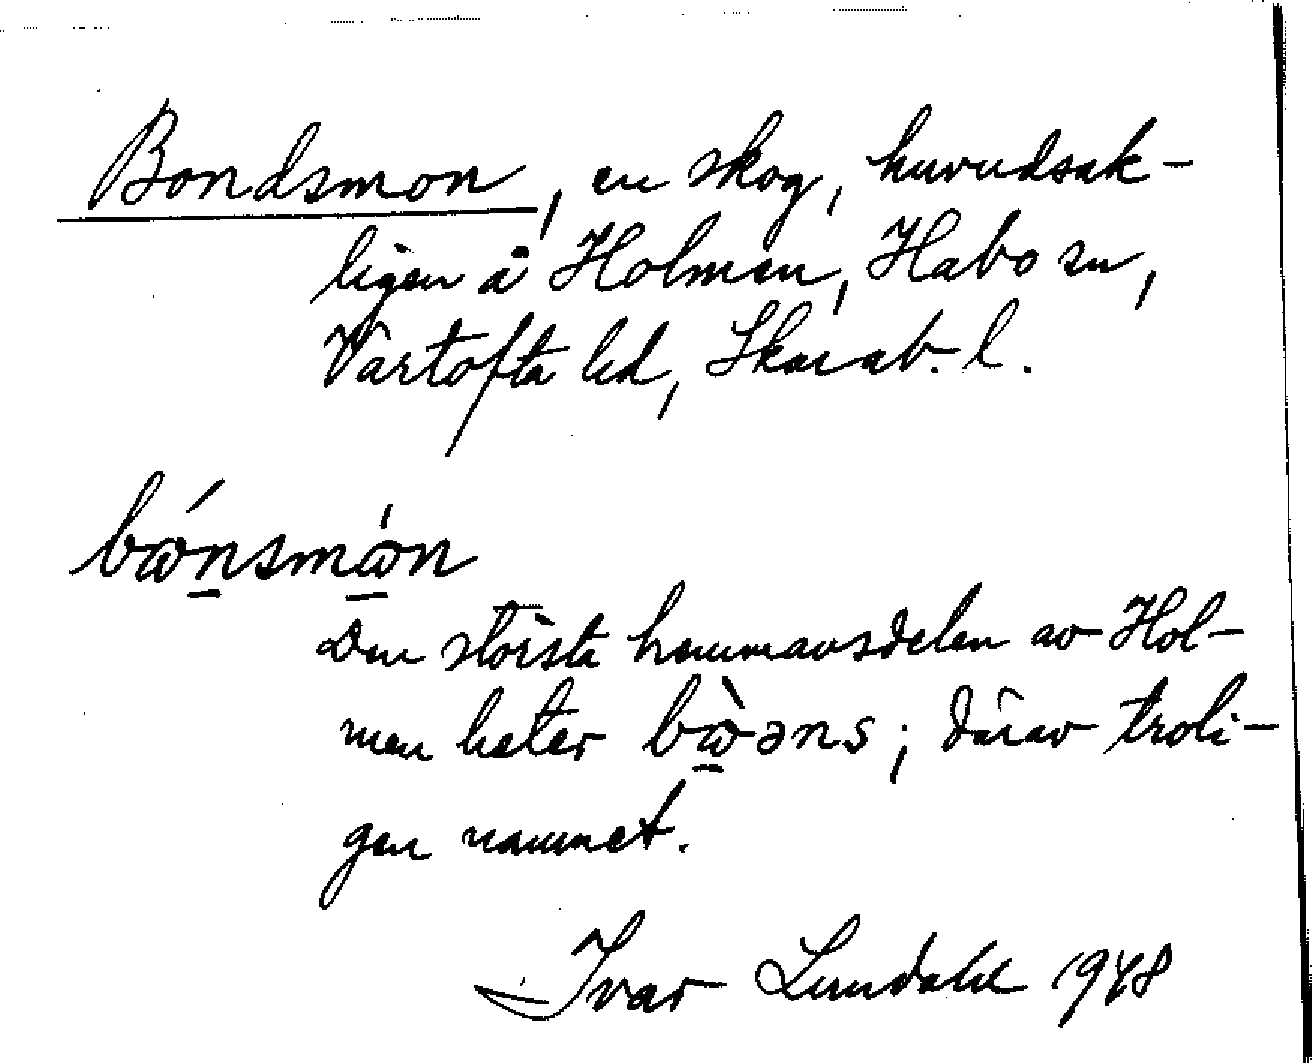 Bondsmon, en skog, huvudsak-
ligen å Holmen, Habo sn,
Vartofta hd, Skarab. l.
bɷ́nsmɷ̀n
Den största hemmansdelen av Hol-
men heter bɷ̀əns; därav troli-
gen namnet.
Ivar Lundahl 1948